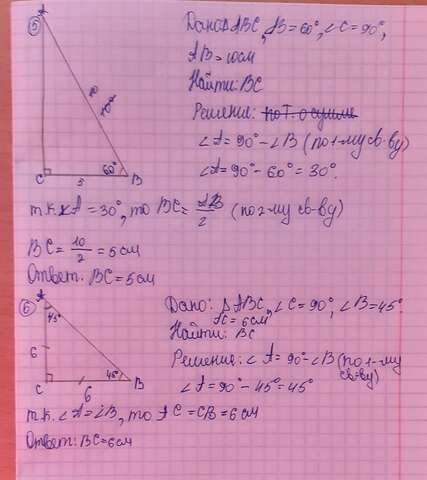 5
A
Дано: △ABC, ∠B=60°, ∠C=90°,
AB=10см
Найти: BC
Решение: по т. о сумме
∠A=90°-∠B (по 1-му св-ву)
∠A=90°-60°=30°.
10
60°
C
5
B
т.к. ∠A=30°, то BC=AB/2 (по 2-му св-ву)
BC=10/2=5см
Ответ: BC=5см
6
A
45°
6
C
6
45°
B
Дано: △ABC, ∠C=90°, ∠B=45°
AC=6см
Найти: BC
Решение: ∠A=90°-∠B (по 1-му
св-ву)
∠A=90°-45°=45°
т.к. ∠A=∠B, то AC=CB=6см
Ответ: BC=6см